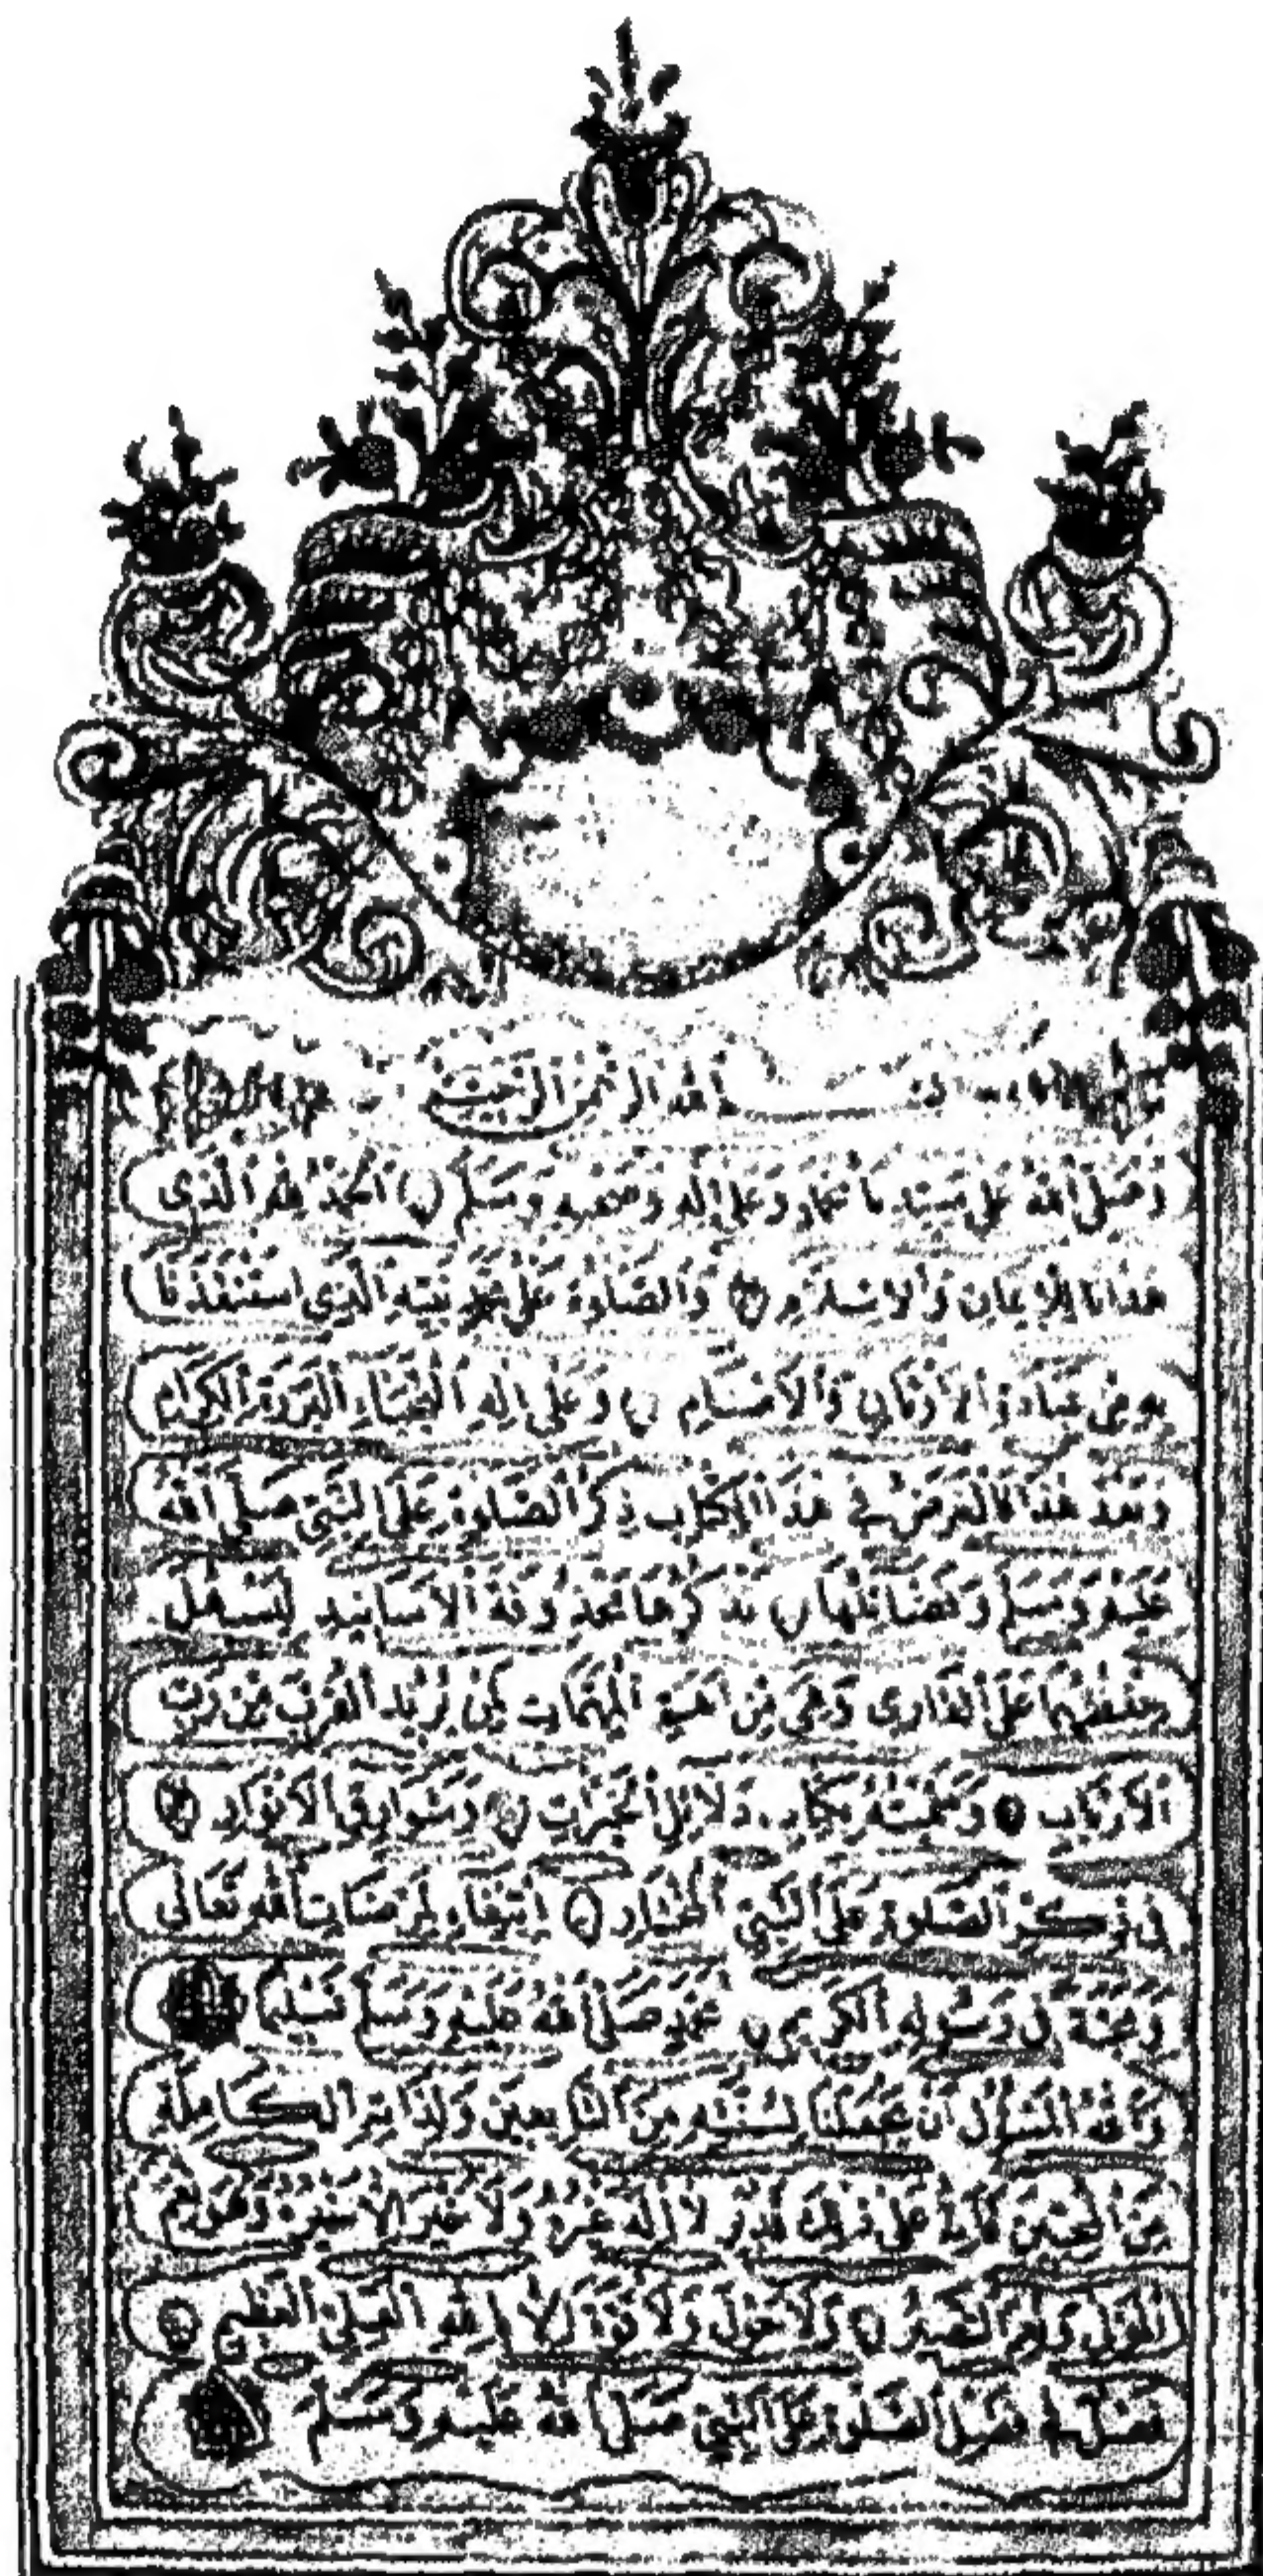 بسم الله الرحمن الرحيم
وَصَلَّى اللهُ عَلَى سَيِّدِنَا مُحَمَّدٍ وَعَلَى اٰلِهِ وَصَحْبِهِ وَسَلَّمَ اَلْحَمْدُ لِلّٰهِ الَّذِى
هَدَانَا لِلْاِيمَانِ وَالْاِسْلَامِ وَالصَّلٰوةُ عَلَى مُحَمَّدٍ نَبِيِّهِ الَّذِى اسْتَنْقَذَنَا
بِهِ مِنْ عِبَادَةِ الْاَوْثَانِ وَالْاَصْنَامِ وَعَلَى اٰلِهِ النُّجَبَاءِ الْبَرَرَةِ الْكِرَامِ
وَبَعْدَ هٰذَا فَالْغَرَضُ فِى هٰذَا الْكِتَابِ ذِكْرُ الصَّلٰوةِ عَلَى النَّبِىِّ صَلَّى اللهُ
عَلَيْهِ وَسَلَّمَ وَفَضَائِلُهَا نَذْكُرُهَا مَحْذُوفَةَ الْاَسَانِيدِ لِيَسْهُلَ
حِفْظُهَا عَلَى الْقَارِىِ وَهِىَ مِنْ اَهَمِّ الْمُهِمَّاتِ لِمَنْ يُرِيدُ الْقُرْبَ مِنْ رَبِّ
الْاَرْبَابِ وَسَمَّيْتُهُ بِكِتَابِ دَلَائِلِ الْخَيْرَاتِ وَشَوَارِقِ الْاَنْوَارِ
فِى ذِكْرِ الصَّلٰوةِ عَلَى النَّبِىِّ الْمُخْتَارِ اِبْتِغَاءً لِمَرْضَاتِ اللهِ تَعَالٰى
وَمَحَبَّةً فِى رَسُولِهِ الْكَرِيمِ مُحَمَّدٍ صَلَّى اللهُ عَلَيْهِ وَسَلَّمَ تَسْلِيمًا
وَاللهُ الْمَسْؤُلُ اَنْ يَجْعَلَنَا لِسُنَّتِهِ مِنَ التَّابِعِينَ وَلِذَاتِهِ الْكَامِلَةِ
مِنَ الْمُحِبِّينَ فَاِنَّهُ عَلَى ذٰلِكَ قَدِيرٌ لَا اِلٰهَ غَيْرُهُ وَلَا خَيْرَ اِلَّا خَيْرُهُ وَهُوَ نِعْمَ
الْمَوْلٰى وَنِعْمَ النَّصِيرُ وَلَا حَوْلَ وَلَا قُوَّةَ اِلَّا بِاللهِ الْعَلِىِّ الْعَظِيمِ
فَصْلٌ فِى فَضْلِ الصَّلٰوةِ عَلَى النَّبِىِّ صَلَّى اللهُ عَلَيْهِ وَسَلَّمَ